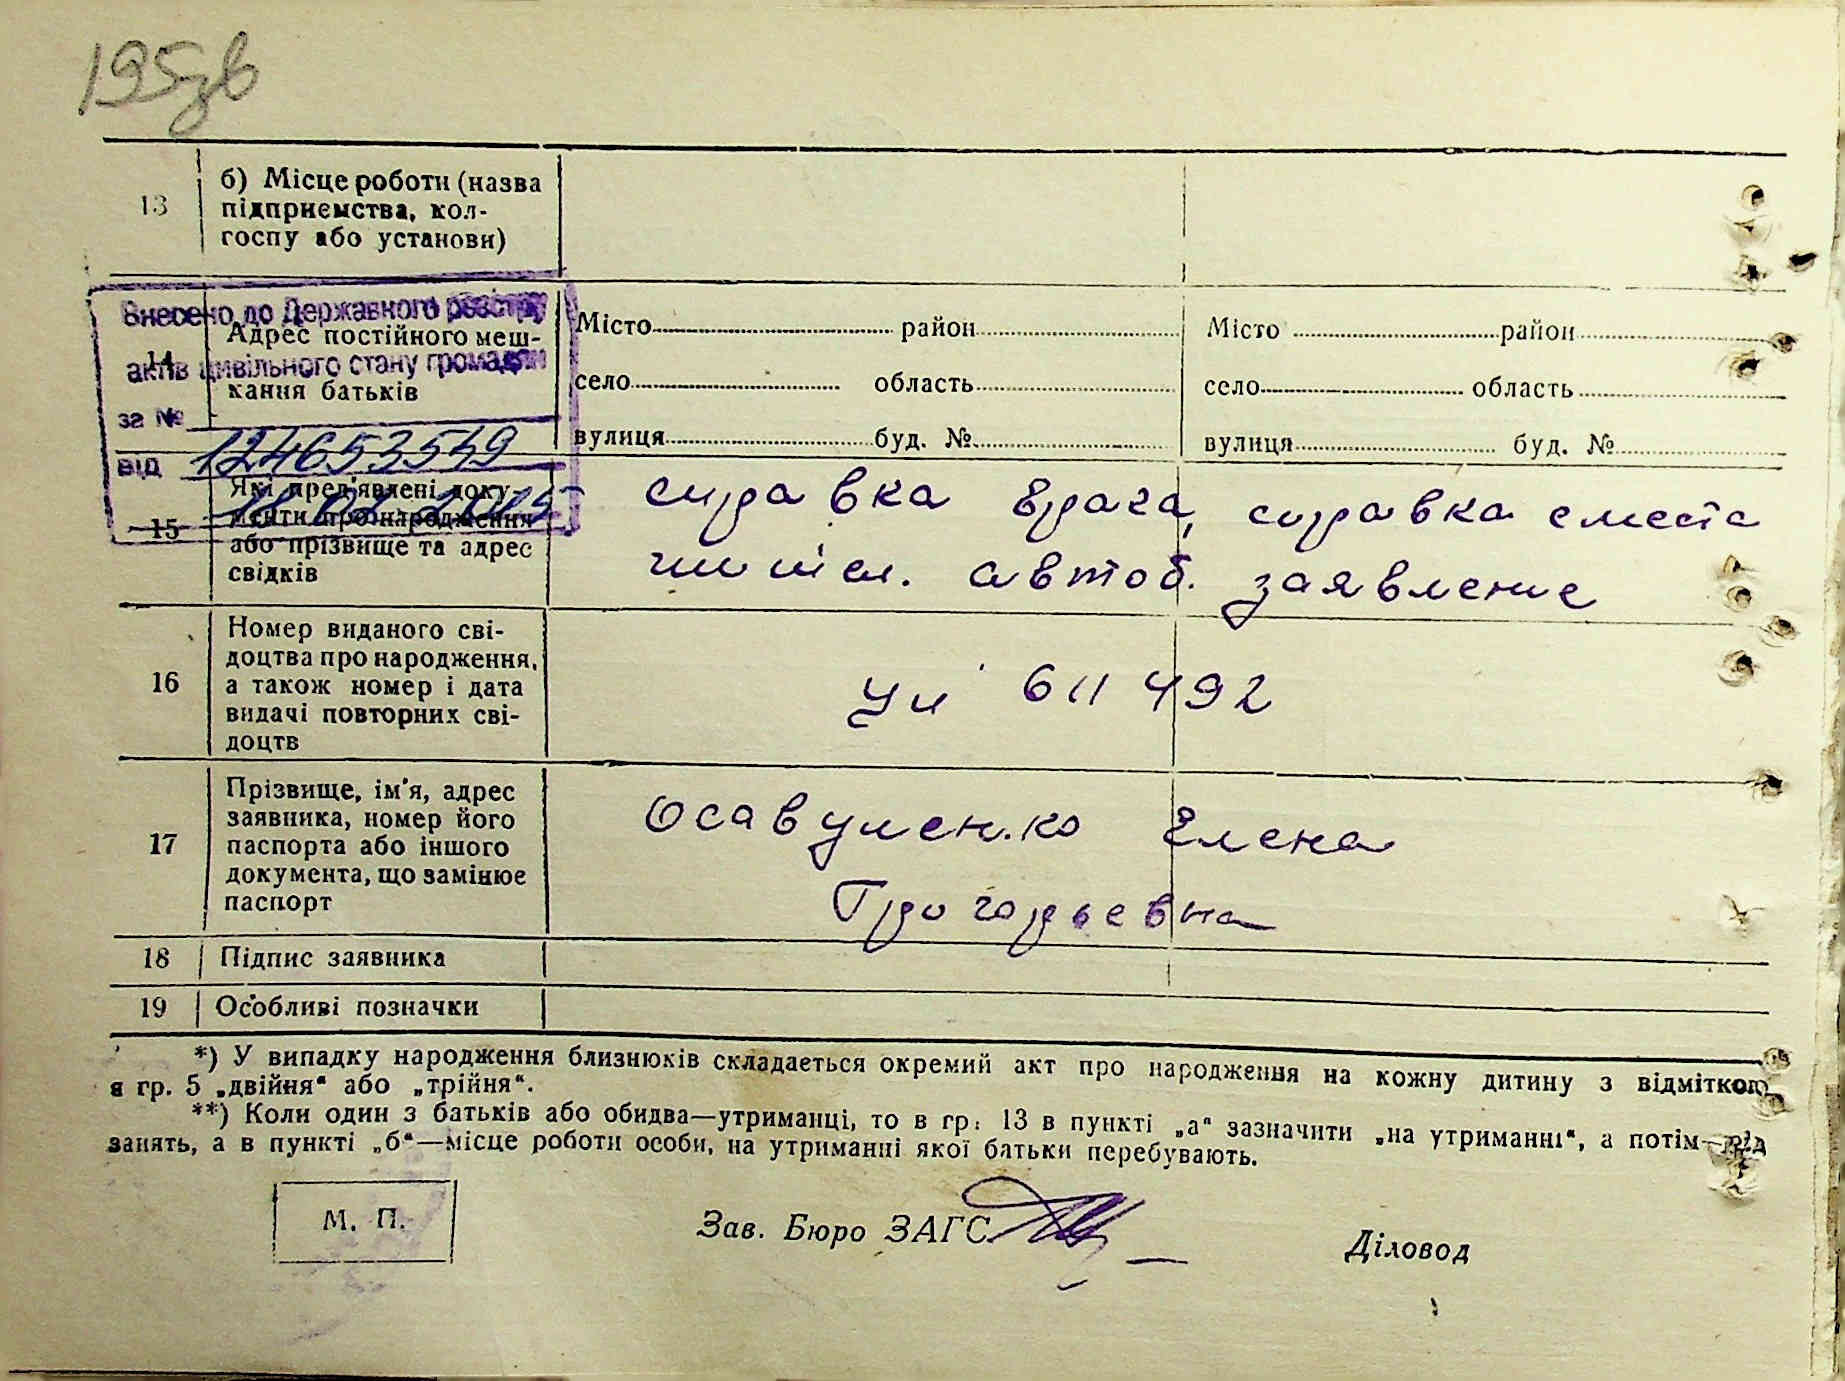 195зв
13
б) Місце роботи (назва
підприємства, кол-
госпу або установи)
Внесено до Державного реєстру
актів цивільного стану громадян
за № 124653549
від
14
Адрес постійного меш-
кання батьків
Місто район
село область
вулиця буд. №
Місто район
село область
вулиця буд. №
15
Які пред'явлені доку-
менти про народження
або прізвище та адрес
свідків
справка врача, справка с места
жител. автоб. заявление
16
Номер виданого сві-
доцтва про народження,
а також номер і дата
видачі повторних сві-
доцтв
611492
17
Прізвище, ім'я, адрес
заявника, номер його
паспорта або іншого
документа, що замінює
паспорт
Осавуленко Елена
Григорьевна
18
Підпис заявника
19
Особливі позначки
*) У випадку народження близнюків складається окремий акт про народження на кожну дитину з відміткою
в гр. 5 „двійня“ або „трійня“.
**) Коли один з батьків або обидва—утриманці, то в гр. 13 в пункті „а“ зазначити „на утриманні“, а потім—рід
занять, а в пункті „б“—місце роботи особи, на утриманні якої батьки перебувають.
М. П.
Зав. Бюро ЗАГС
Діловод